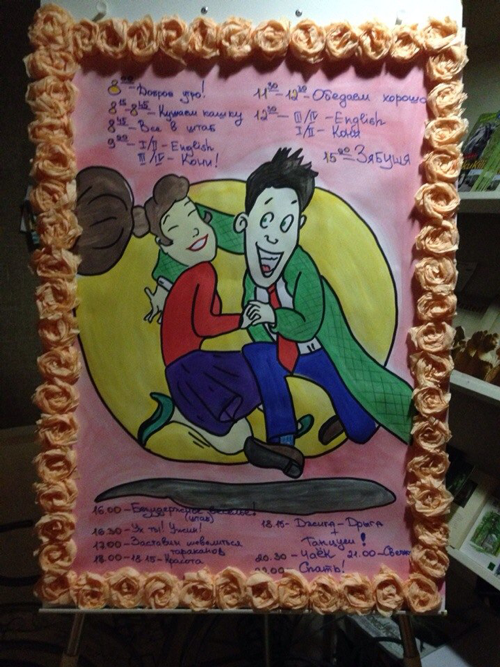 8⁰⁰ - Доброе утро!
8¹⁵- 8⁴⁵ - Кушаем кашку
8⁴⁵ - Все в штаб
9⁰⁰ - I/II - English
III/IV - Кони!
11³⁰ - 12³⁰ - Обедаем хорошо
12³⁰ III/IV - English
I/II - Кони
15⁰⁰ - Зябуша
16.00 - веселье!
(штаб)
16.30 - Ух ты! Ужин!
17.00 - Заставим шевелиться
тараканов
18.00 - 18.15 - Красота
18.15 - Джига - Дрыга
Танцуем!
20.30 - Чаёк 21.00 -
22.00 - Спать!